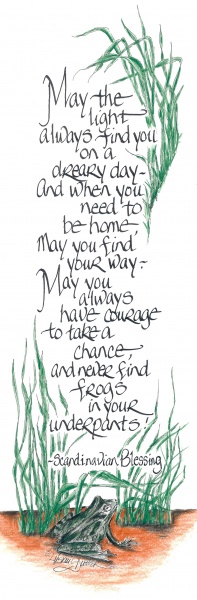 May the
light
always find you
on a
dreary day-
And when you
need to
be home,
may you find
your way:
May you
always
have courage
to take a
chance,
and never find
frogs
in your
underpants!
-Scandinavian Blessing